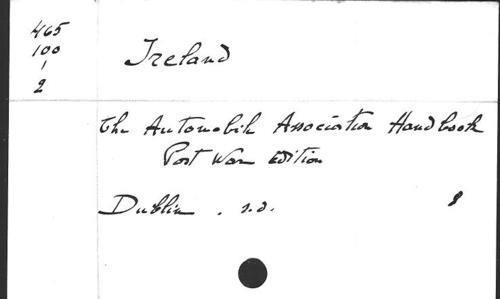 465
100
1
2
Ireland
The Automobile Association Handbook
Post War Edition
Dublin . s.d. 8